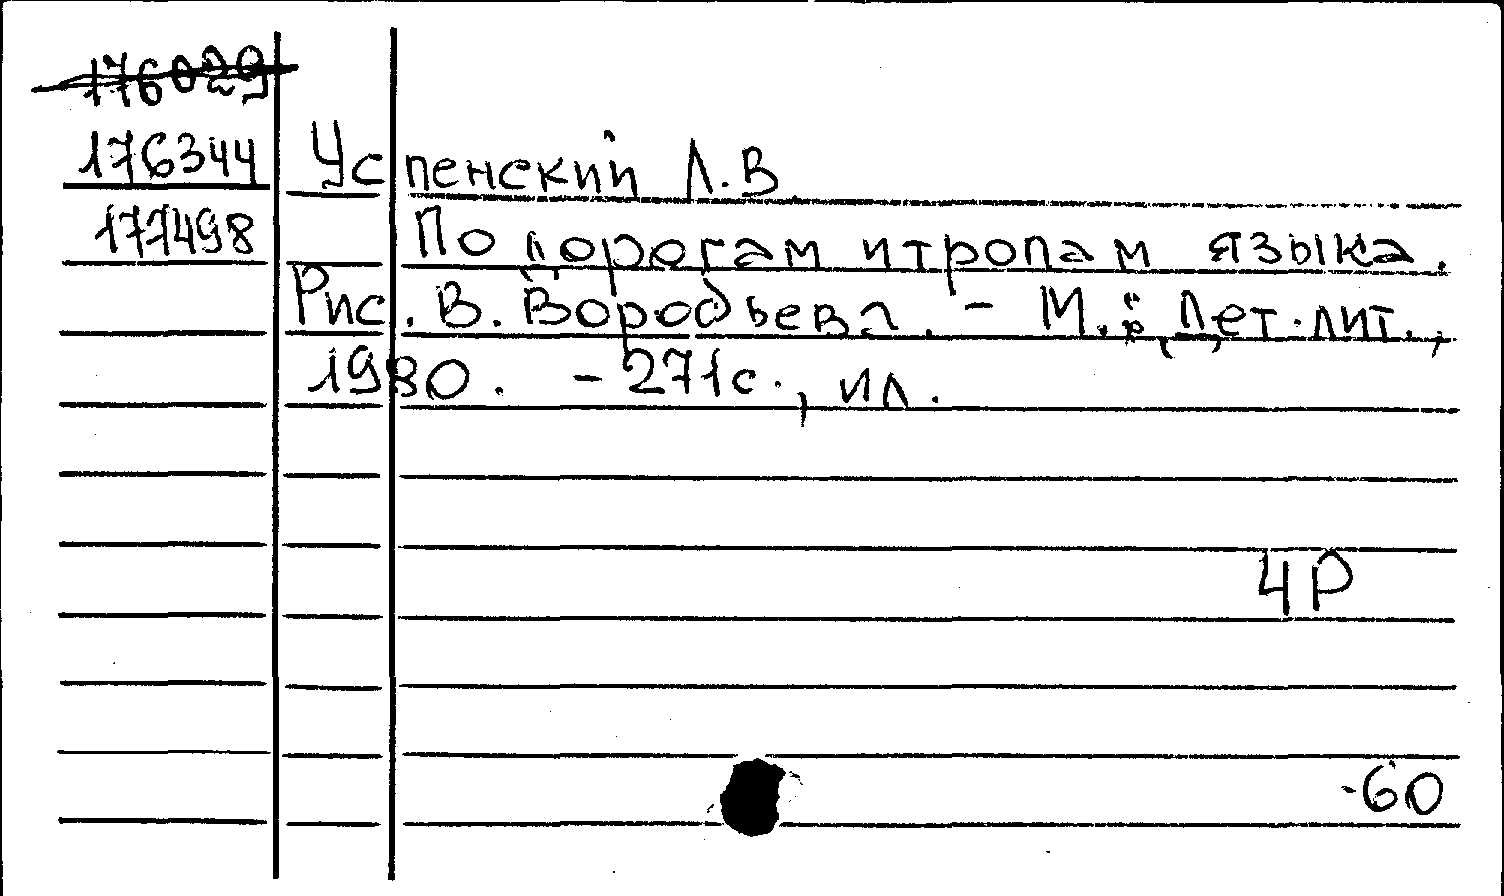 176029
176344 Успенский Л.В
177498 По дорогам и тропам языка.
Рис. В. Воробьева. - М.: Дет. лит.,
1980. - 271с., ил.
4Р
-60